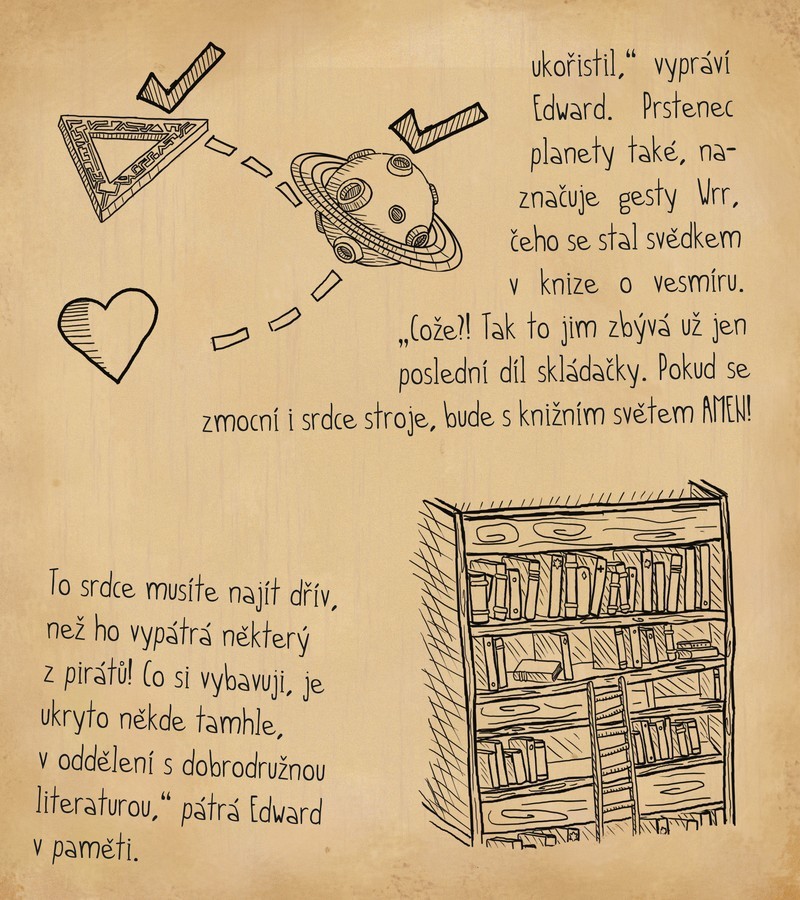 ukořistil,“ vypráví
Edward. Prstenec
planety také, na-
značuje gesty Vrr,
čeho se stal svědkem
v knize o vesmíru.
„Cože?! Tak to jim zbývá už jen
poslední díl skládačky. Pokud se
zmocní i srdce stroje, bude s knižním světem AMEN!
To srdce musíte najít dřív,
než ho vypátrá některý
z pirátů! Co si vybavuji, je
ukryto někde tamhle,
v oddělení s dobrodružnou
literaturou,“ pátrá Edward
v paměti.